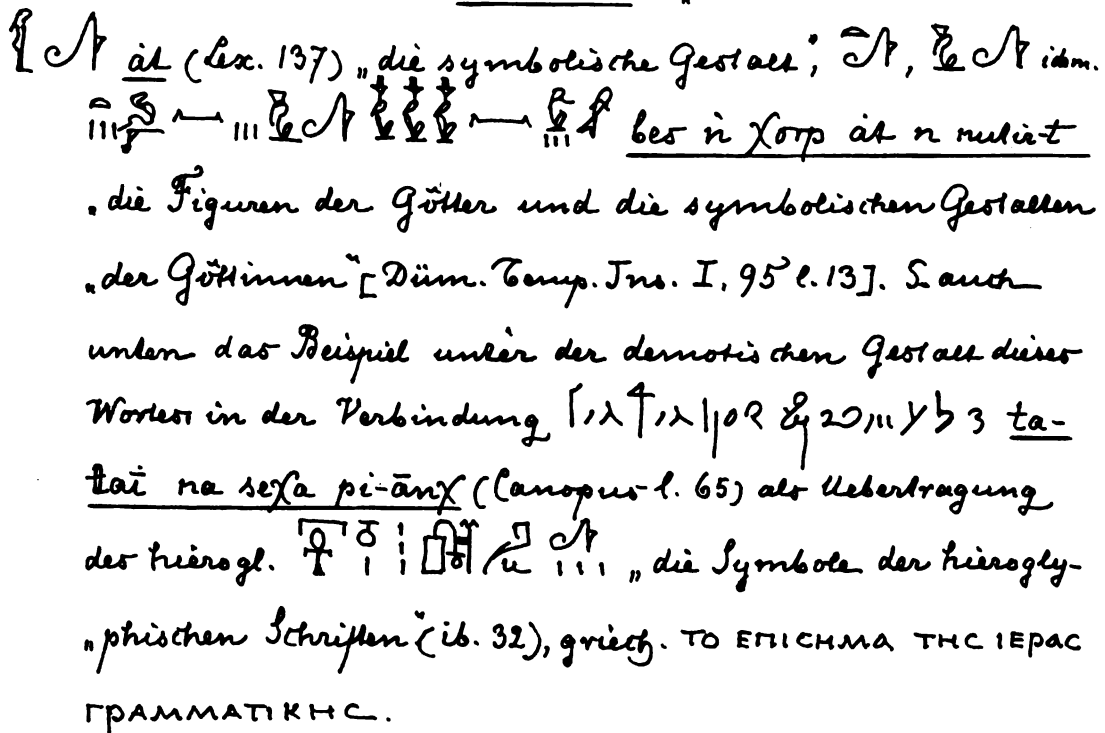 àt (Lex. 137) „die symbolische Gestalt“; , idem.
bes n χorp àt n nutir-t
„die Figuren der Götter und die symbolischen Gestalten
„der Göttinnen“ [Düm. Temp. Ins. I, 95 l. 13]. S. auch
unten das Beispiel unter der demotischen Gestalt dieses
Wortes in der Verbindung ta-
na seχa pi-ānχ (Canopus l. 65) als Uebertragung
des hierogl. „die Symbole der hierogly-
„phischen Schriften“ (ib. 32), griech. ΤΟ ΕΠΙCΗΜΑ ΤΗC ΙΕΡΑC
ΓΡΑΜΜΑΤΙΚΗC.